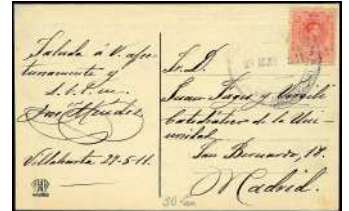 Saluda á V. afec-
tuosamente y
S. S. S. 
José Méndez
Villaharta 28-5-11.
Sr. D.
Juan Fages y Virgili
Catedrático de la Uni-
versidad
San Bernardo, 18.
Madrid.